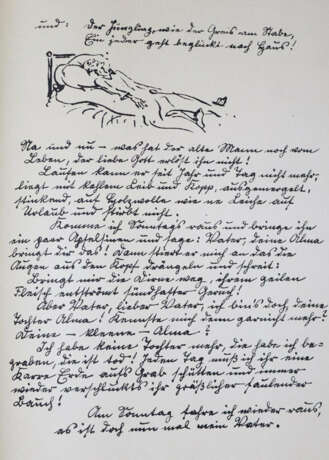 und: der Jüngling, wie der Greis am Stabe,
Ein jeder geht beglückt nach Haus!
Na und nu – was hat der alte Mann noch vom
Leben, der liebe Gott erlöst ihn nicht!
Laufen kann er seit Jahr und Tag nicht mehr,
liegt mit kahlem Leib und Kopp, ausgemergelt,
stinkend, auf Holzwolle wie ne Leiche auf
Urlaub und stirbt nicht.
Komme ich Sonntags raus und bringe ihm
ein paar Apfelsinen und sage: Vater, deine Alma
bringt dir das! Dann stiert er mich an das die
Augen aus den Kopf drängeln und schreit:
Bringt mir die Dirne weg, ihrem geilen
Fleisch entströmt sündhafter Geruch!
Aber Vater, lieber Vater, ich bins doch, deine
Tochter Alma! Kennste mich denn garnicht mehr?
Deine – kleene – Alma?
Ich habe keine Tochter mehr, die habe ich be-
graben, die ist tod! Jeden Tag muß ich ihr eine
Karre Erde aufs Grab schütten und immer
wieder verschluckts ihr gräßlicher faulender
Bauch!
Am Sonntag fahre ich wieder raus,
es ist doch nun mal mein Vater.